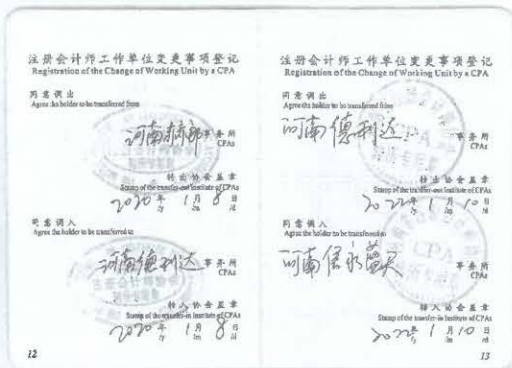 注册会计师工作单位变更事项登记
Registration of the Change of Working Unit by a CPA
同意调出
Agree the holder to be transferred from
河南 事务所
CPAs
转出协会盖章
Stamp of the transfer-out Institute of CPAs
2020年 1月 8日
/y /m /d
同意调入
Agree the holder to be transferred to
河南德利达 事务所
CPAs
转入协会盖章
Stamp of the transfer-in Institute of CPAs
2020年 1月 8日
/y /m /d
12
注册会计师工作单位变更事项登记
Registration of the Change of Working Unit by a CPA
同意调出
Agree the holder to be transferred from
河南德利达 事务所
CPAs
CPA
转出协会盖章
Stamp of the transfer-out Institute of CPAs
2022年 1月 10日
/y /m /d
同意调入
Agree the holder to be transferred to
河南 事务所
CPAs
CPA
转入协会盖章
Stamp of the transfer-in Institute of CPAs
2022年 1月 10日
/y /m /d
13